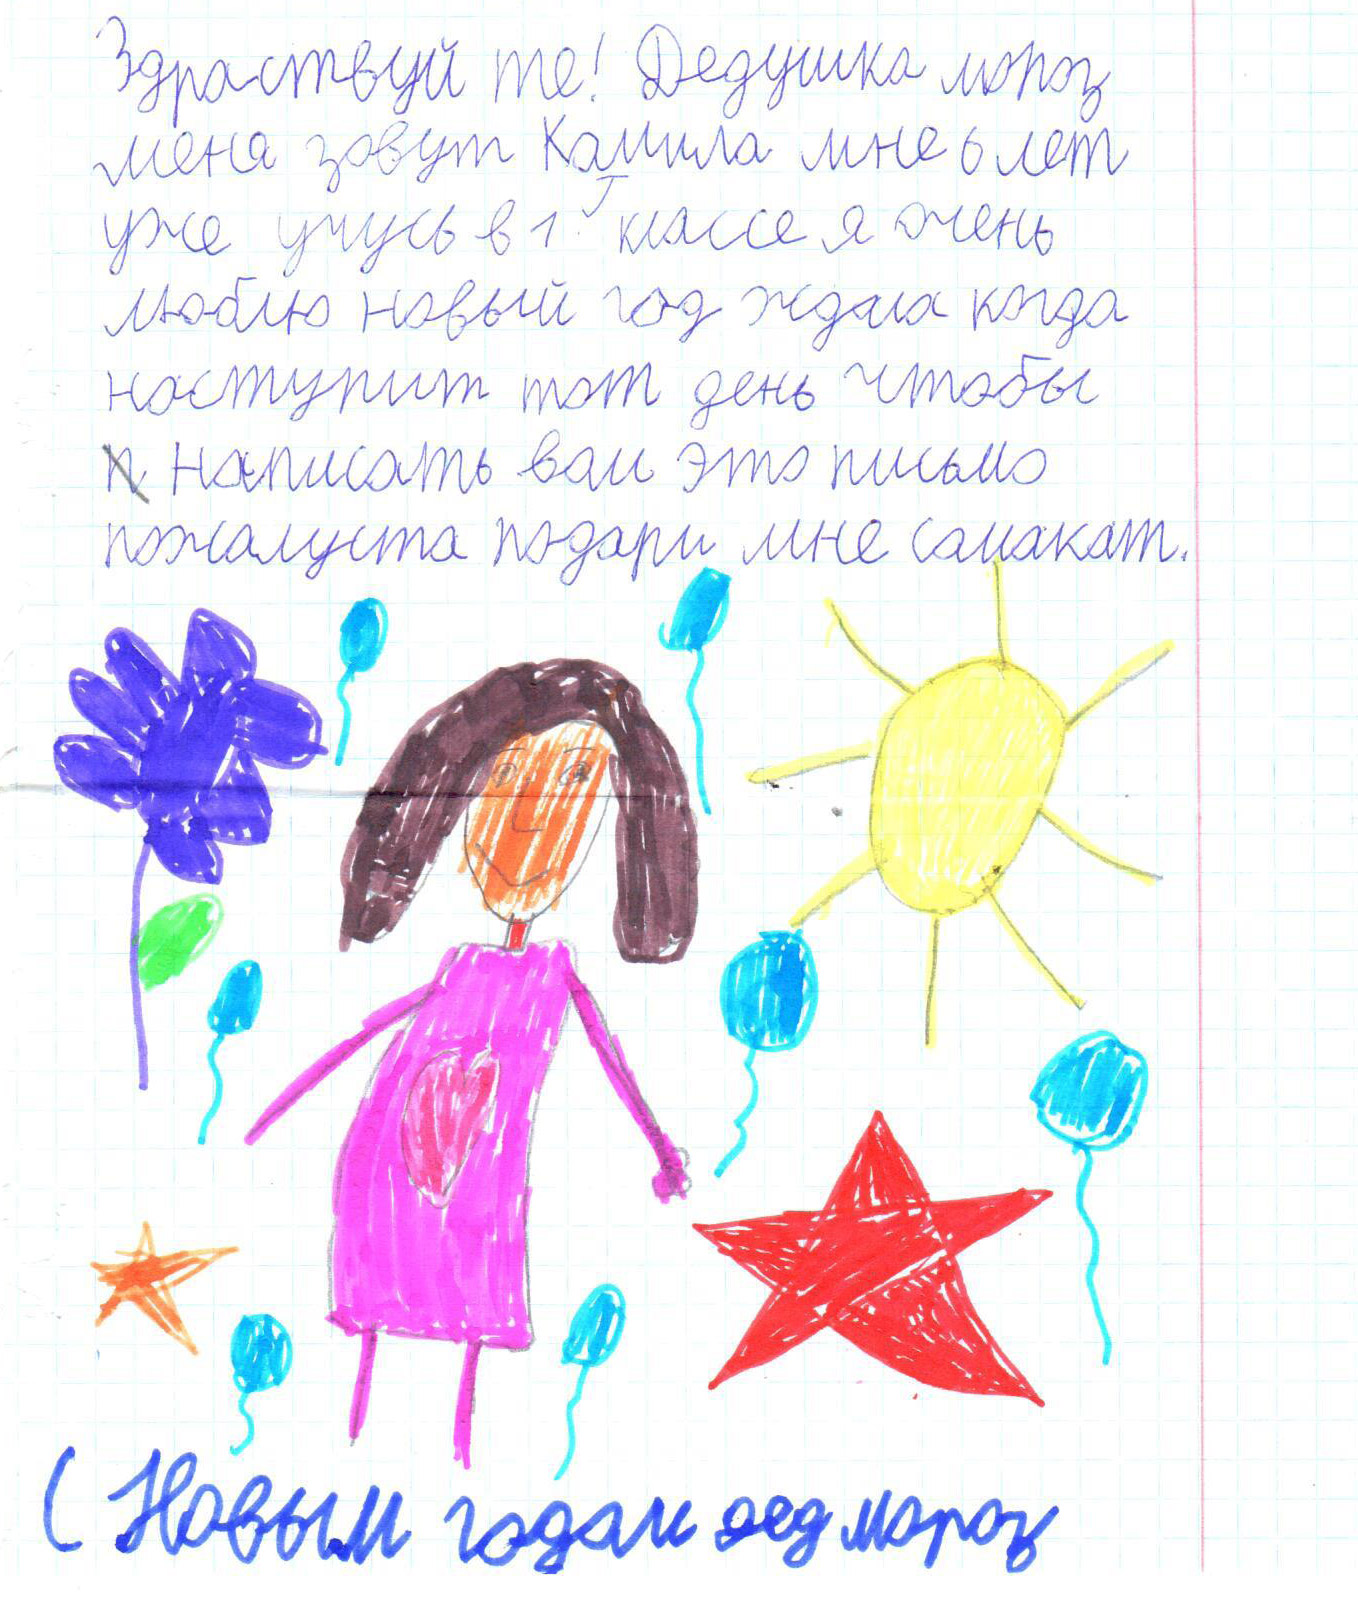 Здраствуй те! Дедушка мороз
меня зовут Камила мне 6 лет
уже учусь в 1 классе я очень
люблю новый год ждала когда
наступит тот день чтобы
написать вам это письмо
пожалуста подари мне самакат.
С Новым годам дед мороз